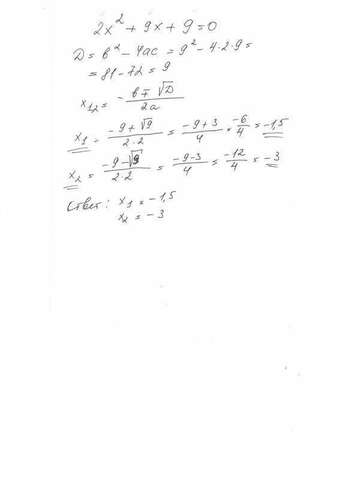 2x² + 9x + 9 = 0
D = b² − 4ac = 9² − 4·2·9 =
= 81 − 72 = 9
x₁,₂ = −b ∓ √D / 2a
x₁ = −9 + √9 / 2·2 = −9 + 3 / 4 = −6 / 4 = −1,5
x₂ = −9 − √9 / 2·2 = −9 − 3 / 4 = −12 / 4 = −3
Ответ: x₁ = −1,5
x₂ = −3